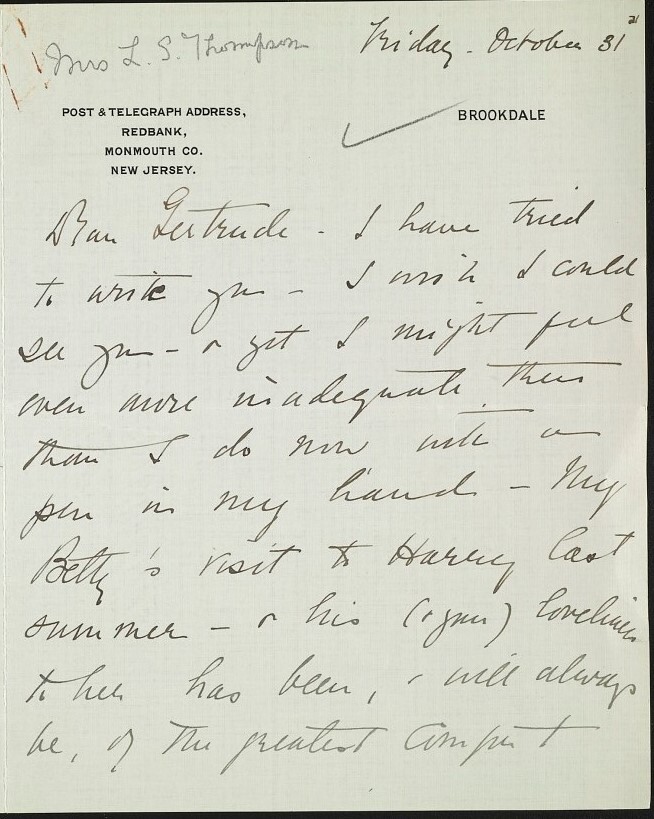 21
Mrs L. S. Thompson
Friday - October 31
POST & TELEGRAPH ADDRESS,
REDBANK,
MONMOUTH CO.
NEW JERSEY.
BROOKDALE
Dear Gertrude - I have tried
to write you - I wish I could
see you - & yet I might feel
even more inadequate then
than I do now with a
pen in my hand - My
Betty's visit to Harry last
summer - & his (& your) loveliness
to her has been, & will always
be, of the greatest comfort